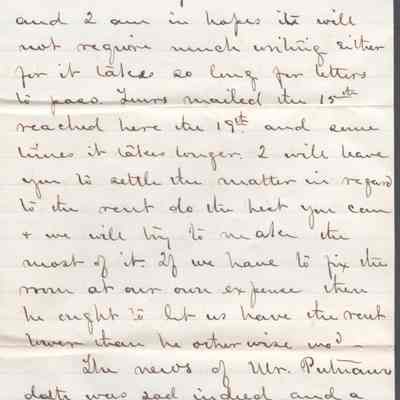 and I am in hopes it will
not require much writing either
for it takes so long for letters
to pass. Yours mailed the 15th
reached here the 19th and some
times it takes longer. I will leave
you to settle the matter in regard
to the rent do the best you can
& we will try to make the
most of it. If we have to fix the
room at our own expense then
he ought to let us have the rent
lower than he otherwise wod -
The news of Mr. Putnam
death was sad indeed and a